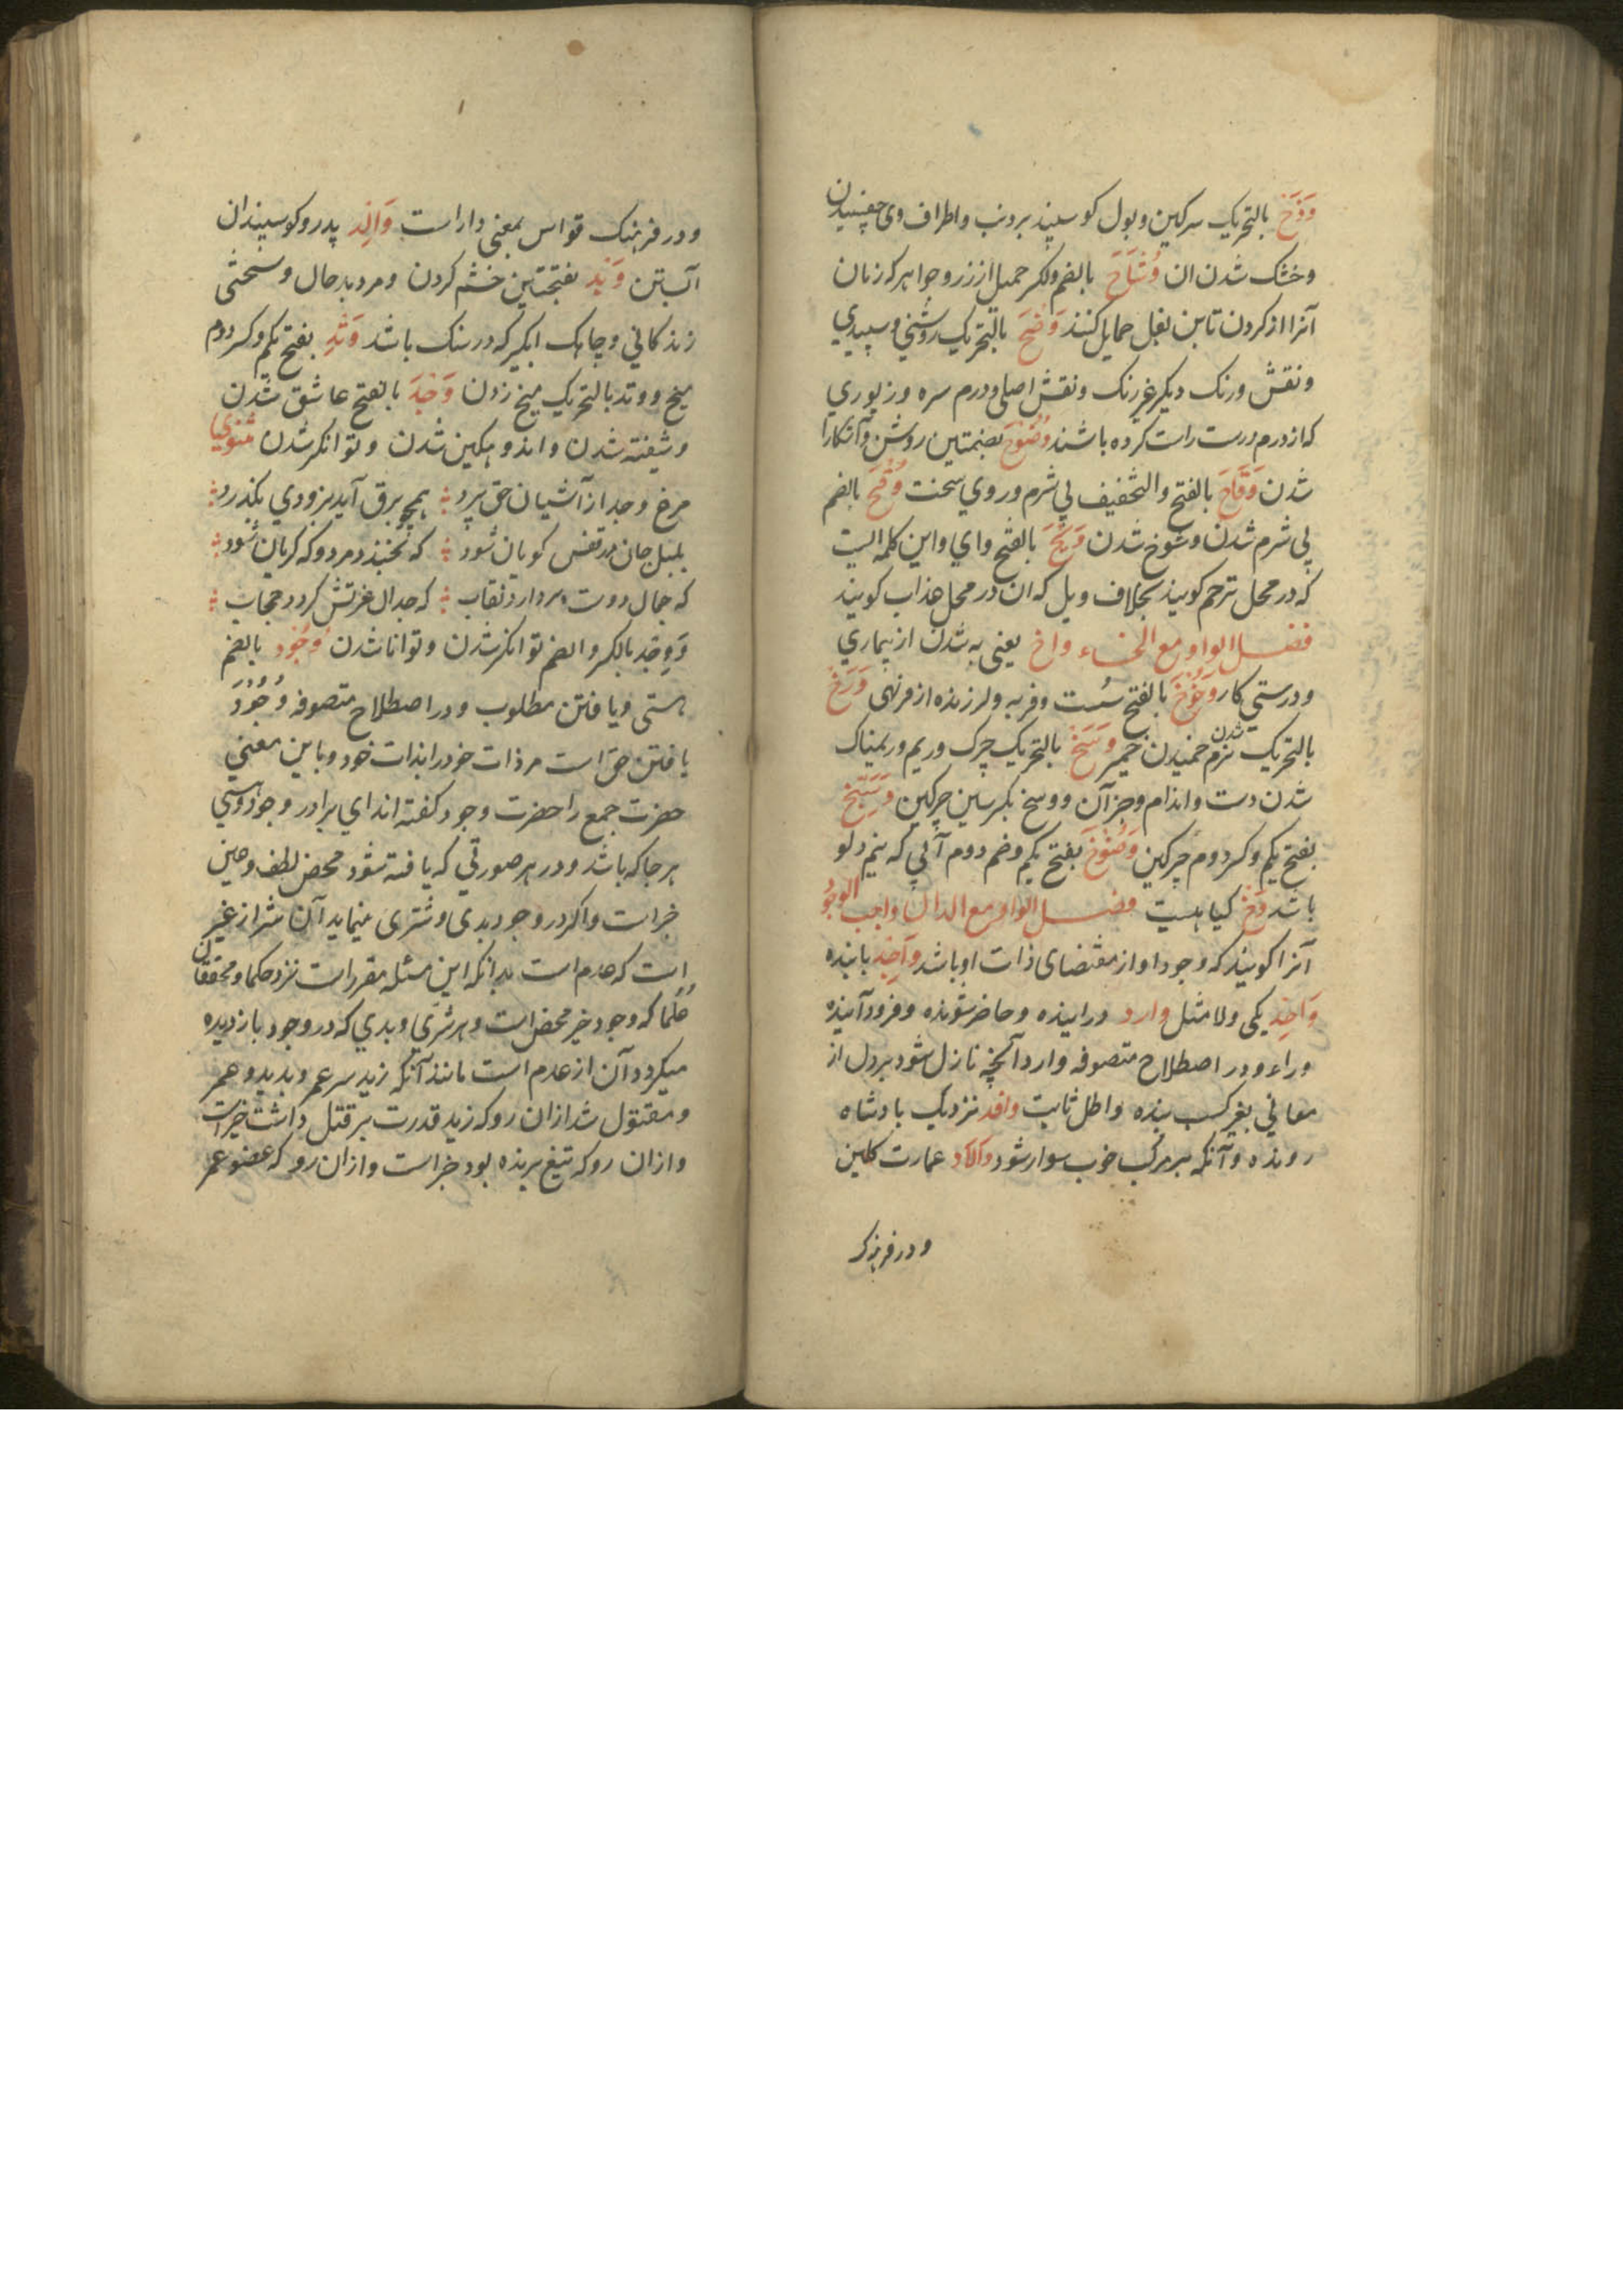 وَذَخ بالتحریک سرکین وبول کوسپند بردنب واطراف وی چفسیدن
وخشک شدن ان وُشَاح بالضم والکسر حمیل از زر وجواهر که زنان
آنرا از کردن تا بن بغل حمایل کنند وَضَح بالتحریک روشنی وسپیدی
ونقش ورنک دیکر غیر رنک ونقش اصلی ودرم سره وزیوری
که از درم درست راست کرده باشند وُضُوح بضمتین روشن وآشکارا
شدن وَقَاح بالفتح والتخفیف بی شرم وروی سخت وُقُح بالضم
بی شرم شدن وشوخ شدن وَیْحَ بالفتح وای واین کلمه ایست
که در محل ترحم کویند بخلاف ویل که ان در محل عذاب کویند
فصل الواو مع الخاء واخ یعنی به شدن از بیماری
ودرستی کار وَخْوَخ بالفتح سست وفربه ولرزنده از فربهی وَرَخ
بالتحریک نرم شدن خمیر وَسَخ بالتحریک چرک وریم وریمناک
شدن دست واندام وجز آن ووسخ بکسر سین چرکین وَسِیخ
بفتح یکم وکسر دوم چرکین وَضُوخ بفتح یکم وضم دوم آبی که نیم دلو
باشد وَخ کیاهیست فصل الواو مع الدال واجب الوجود
آنرا کویند که وجود او از مقتضای ذات او باشد وَاجِد یابنده
وَاحِد یکی ولا مثل وارد در اینده وحاضر شونده وفرود آینده
وراه ودر اصطلاح متصوفه وارد آنچه نازل شود بر دل از
معانی بغیر کسب بنده واطل ثابت وافد نزدیک بادشاه
رونده وآنکه بر مرکب خوب سوار شود والاد عمارت کلین
ودر فرهنک
ودر فرهنک قواس بمعنی دار است وَالِد پدر وکوسپندان
آبستن وَبَد بفتحتین خشم کردن ومرد بد حال وسختی
زندکانی وچاهک ابکیر که در سنک باشد وَتِد بفتح یکم وکسر دوم
میخ ووتد بالتحریک میخ زدن وَجْد بالفتح عاشق شدن
وشیفته شدن واندوهکین شدن وتوانکر شدن مثنوی
مرغ وجد از آشیان حق پرد همچو برق آید بزودی بکذرد
بلبل جان در قفس کویان شود که بخندد مرد وکه کریان شود
که جمال دوست بردارد نقاب که جدال عزتش کردد حجاب
وَوجْد بالکسر والضم توانکر شدن وتوانا شدن وُجُود بالضم
هستی ویافتن مطلوب ودر اصطلاح متصوفه وُجُود
یافتن حق است مر ذات خود را بذات خود وباین معنی
حضرت جمع را حضرت وجود کفته اند ای برادر وجود وهستی
هر جا که باشد ودر هر صورتی که یافته شود محض لطف وعین
خیر است واکر در وجود بدی وشری مینماید آن شر از غیر
است که عدم است بدانکه این مسئله مقرر است نزد حکما ومحققان
علما که وجود خیر محض است وهر شری وبدی که در وجود باز دیده
میکردد آن از عدم است مانند آنکه زید سر عمر وبدید وعمر
ومقتول شد از ان رو که زید قدرت بر قتل داشت خیر است
واز ان رو که تیغ برنده بود خیر است واز ان رو که عضو عمر